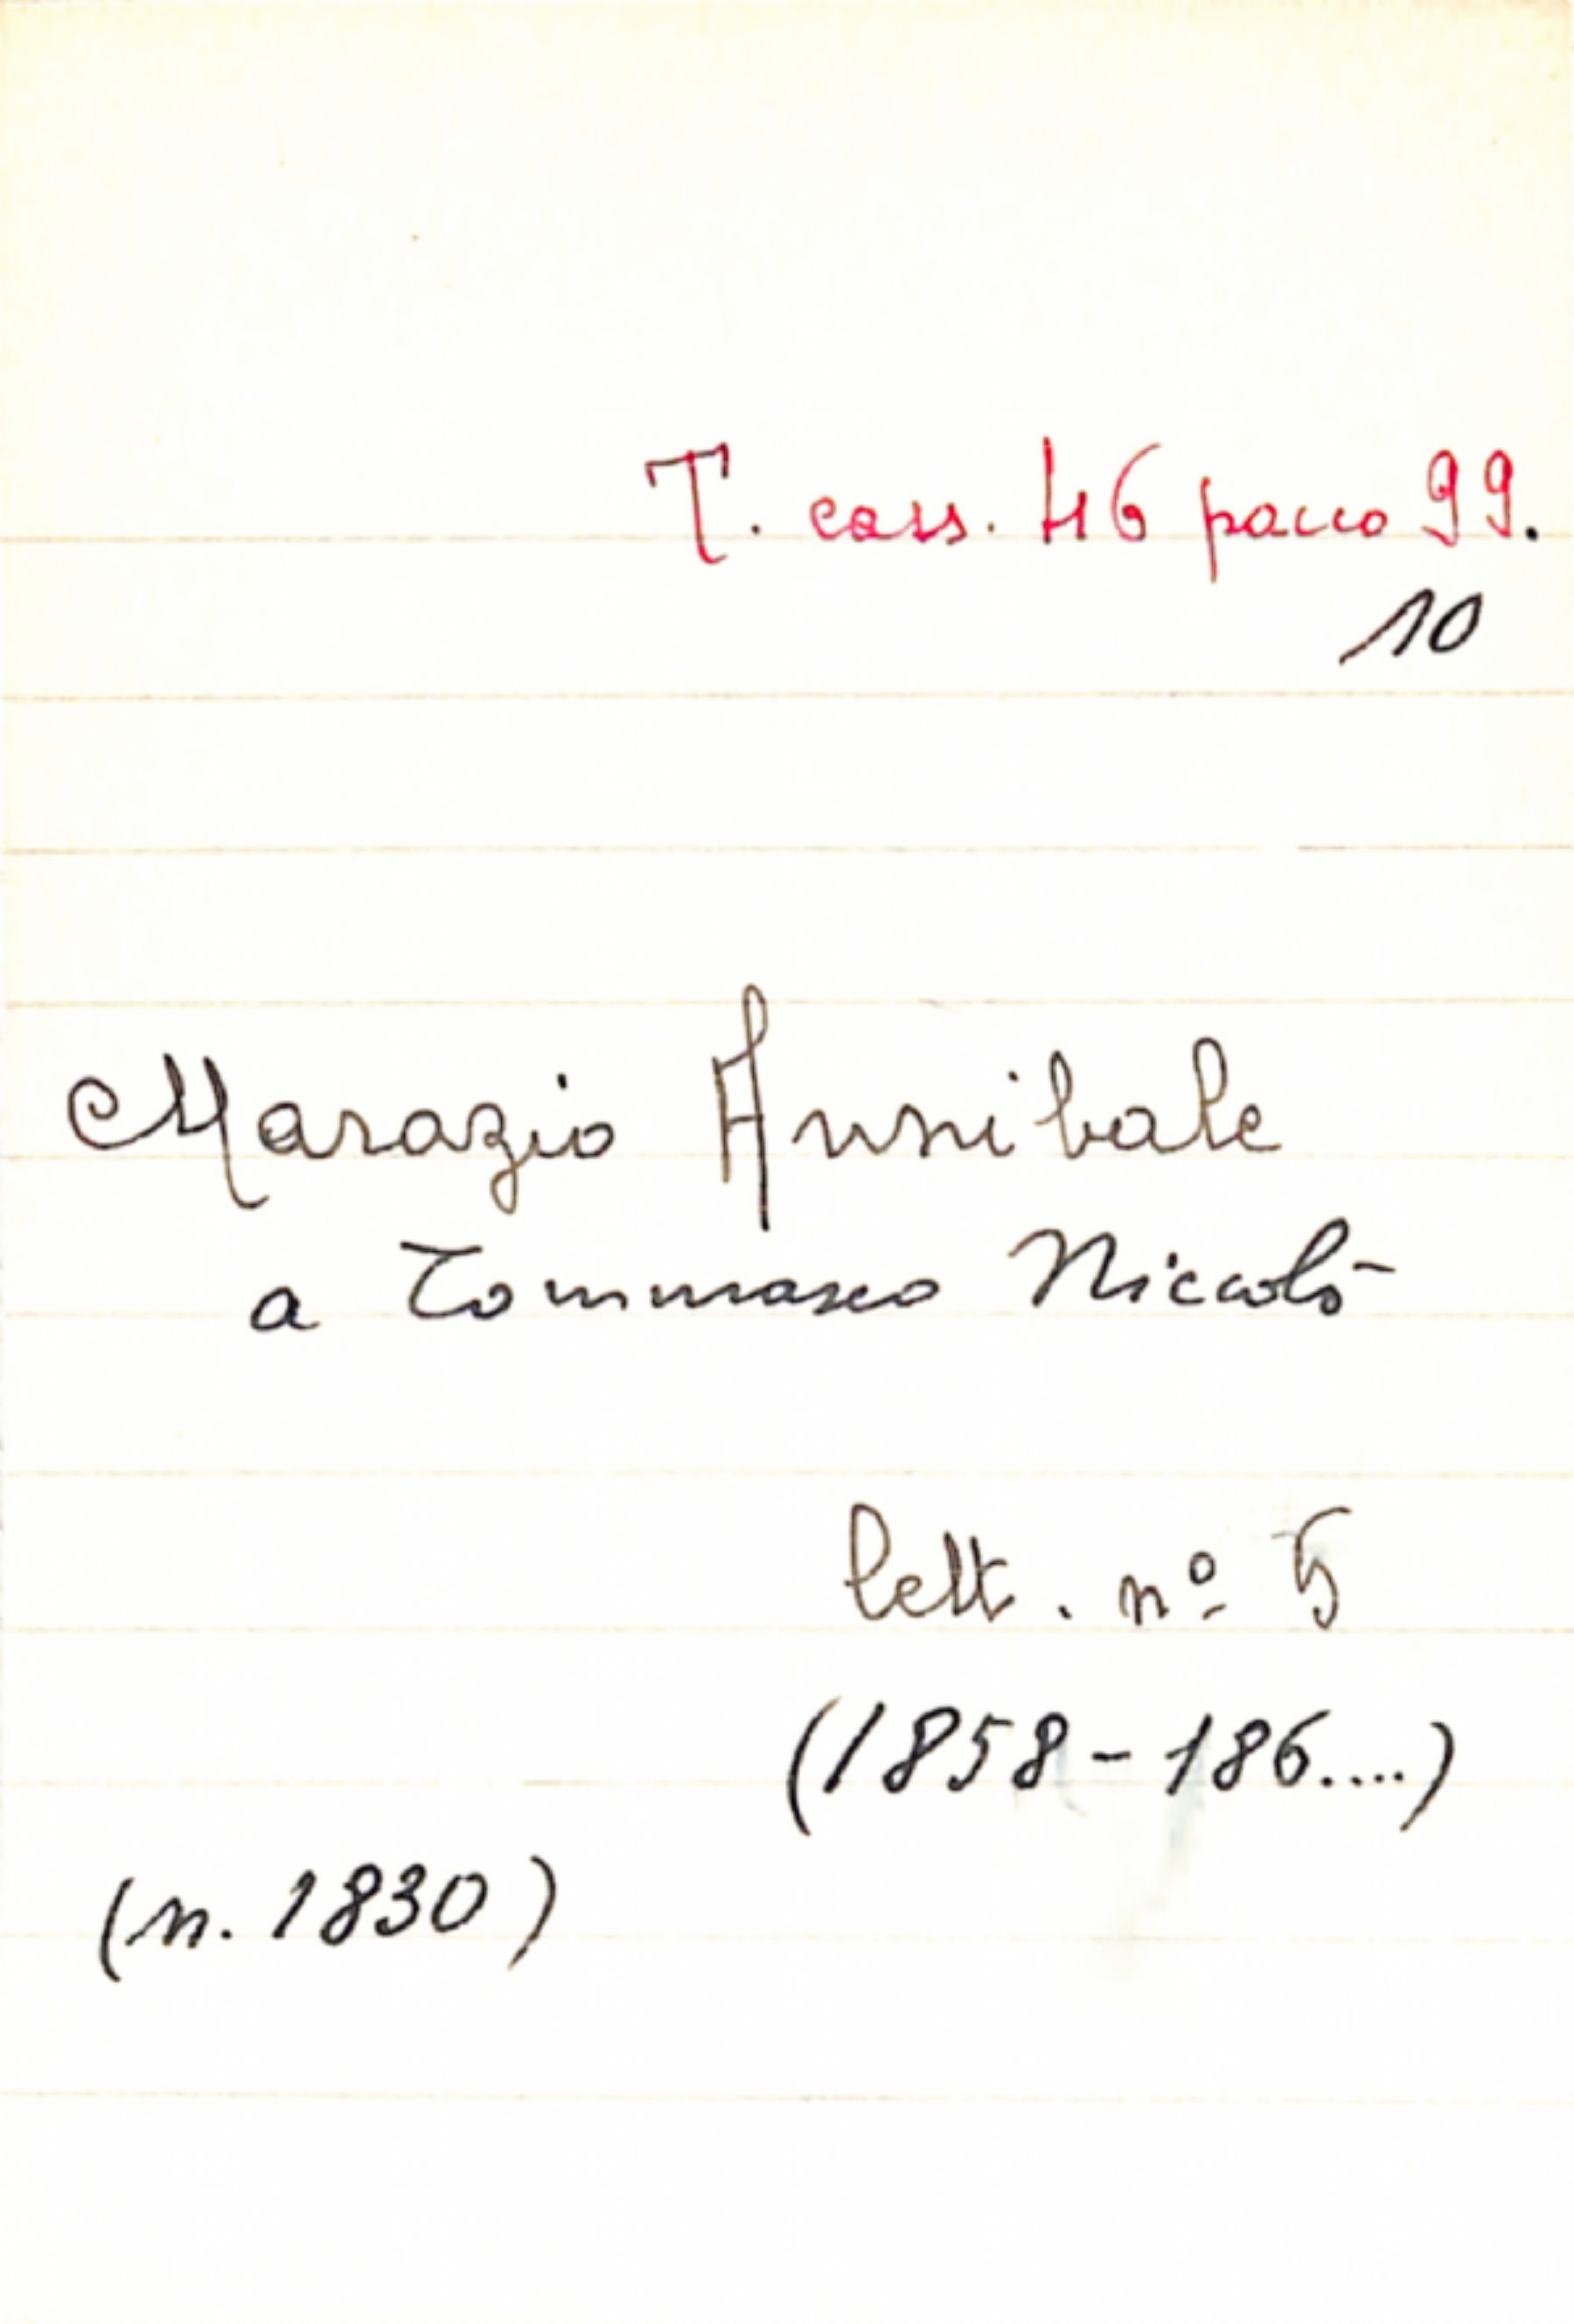 T. cass. 46 pacco 99.
10
Marazio Annibale
a Tommaseo Niccolò
lett. nº 5
(1858-186....)
(n. 1830)